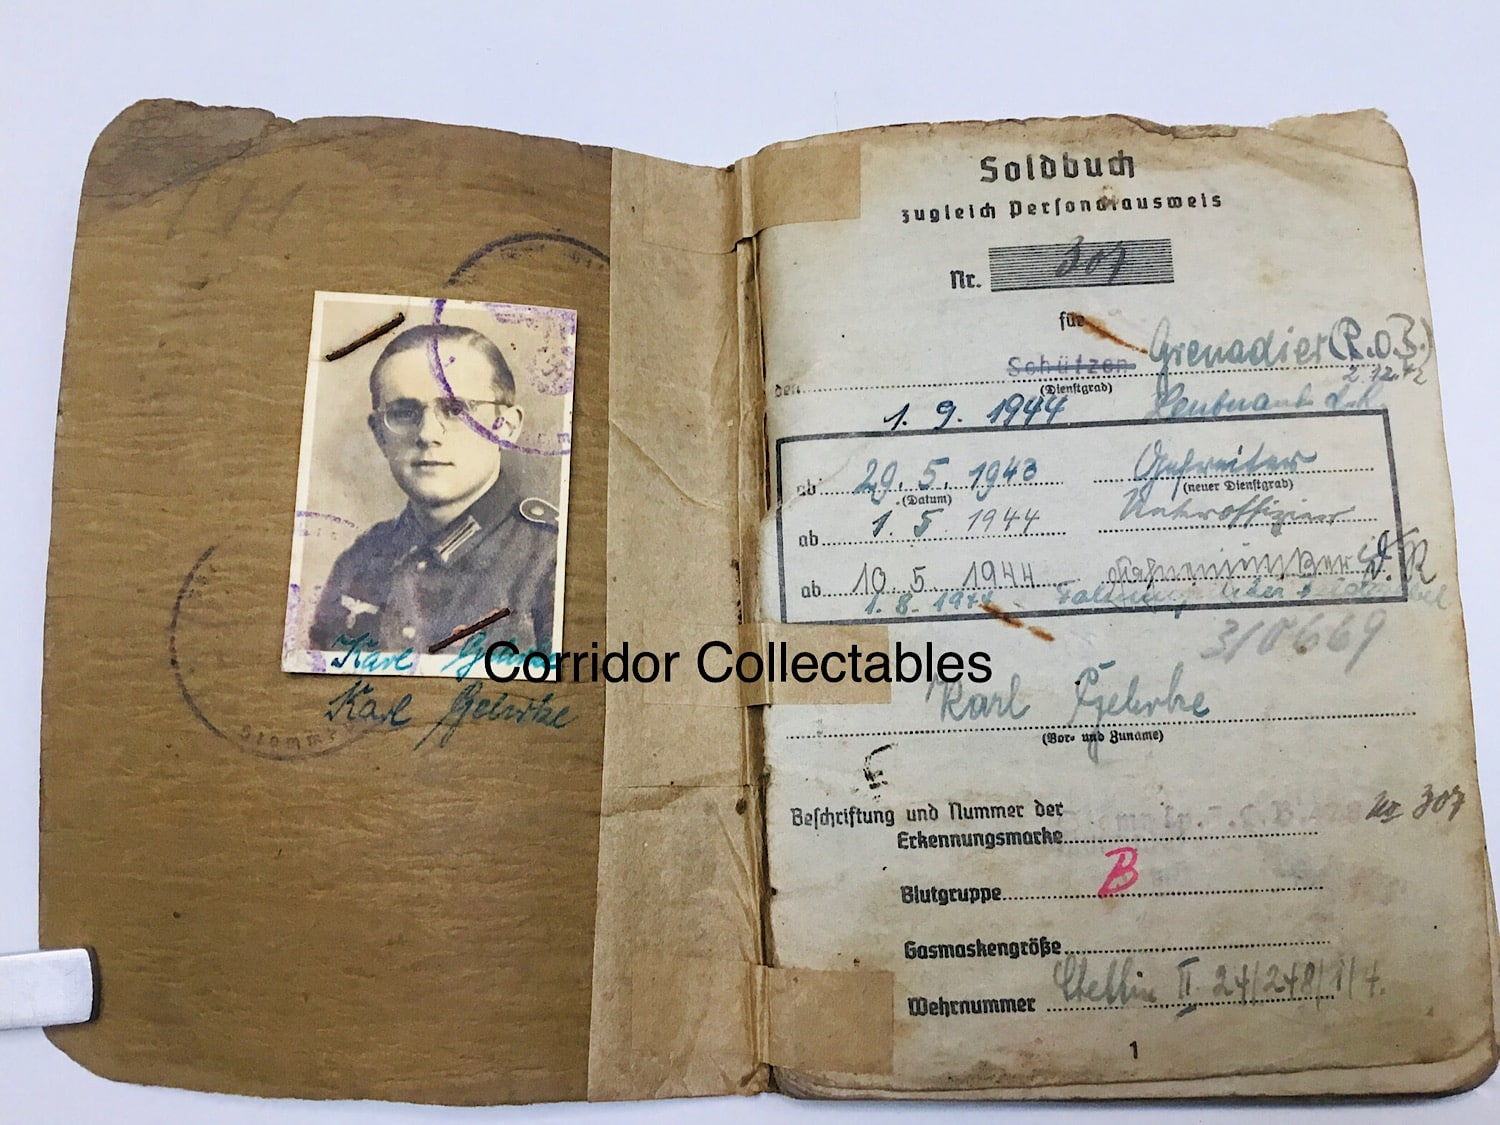 Karl
Karl Gehrke
Corridor Collectables
Soldbuch
zugleich Personalausweis
Nr. 307
für
den Schützen Grenadier (R.O.B.)
(Dienstgrad) 2.12.42
1. 9. 1944 Leutnant d.R.
ab 29. 5. 1943 Gefreiter
(Datum) (neuer Dienstgrad)
ab 1. 5. 1944 Unteroffizier
ab 10. 5. 1944 Fahnenjunker d. R
1. 8. 1944
Karl Gehrke
(Vor- und Zuname)
Beschriftung und Nummer der No 307
Erkennungsmarke
Blutgruppe B
Gasmaskengröße
Wehrnummer Stettin II 24/248/1/7.
1